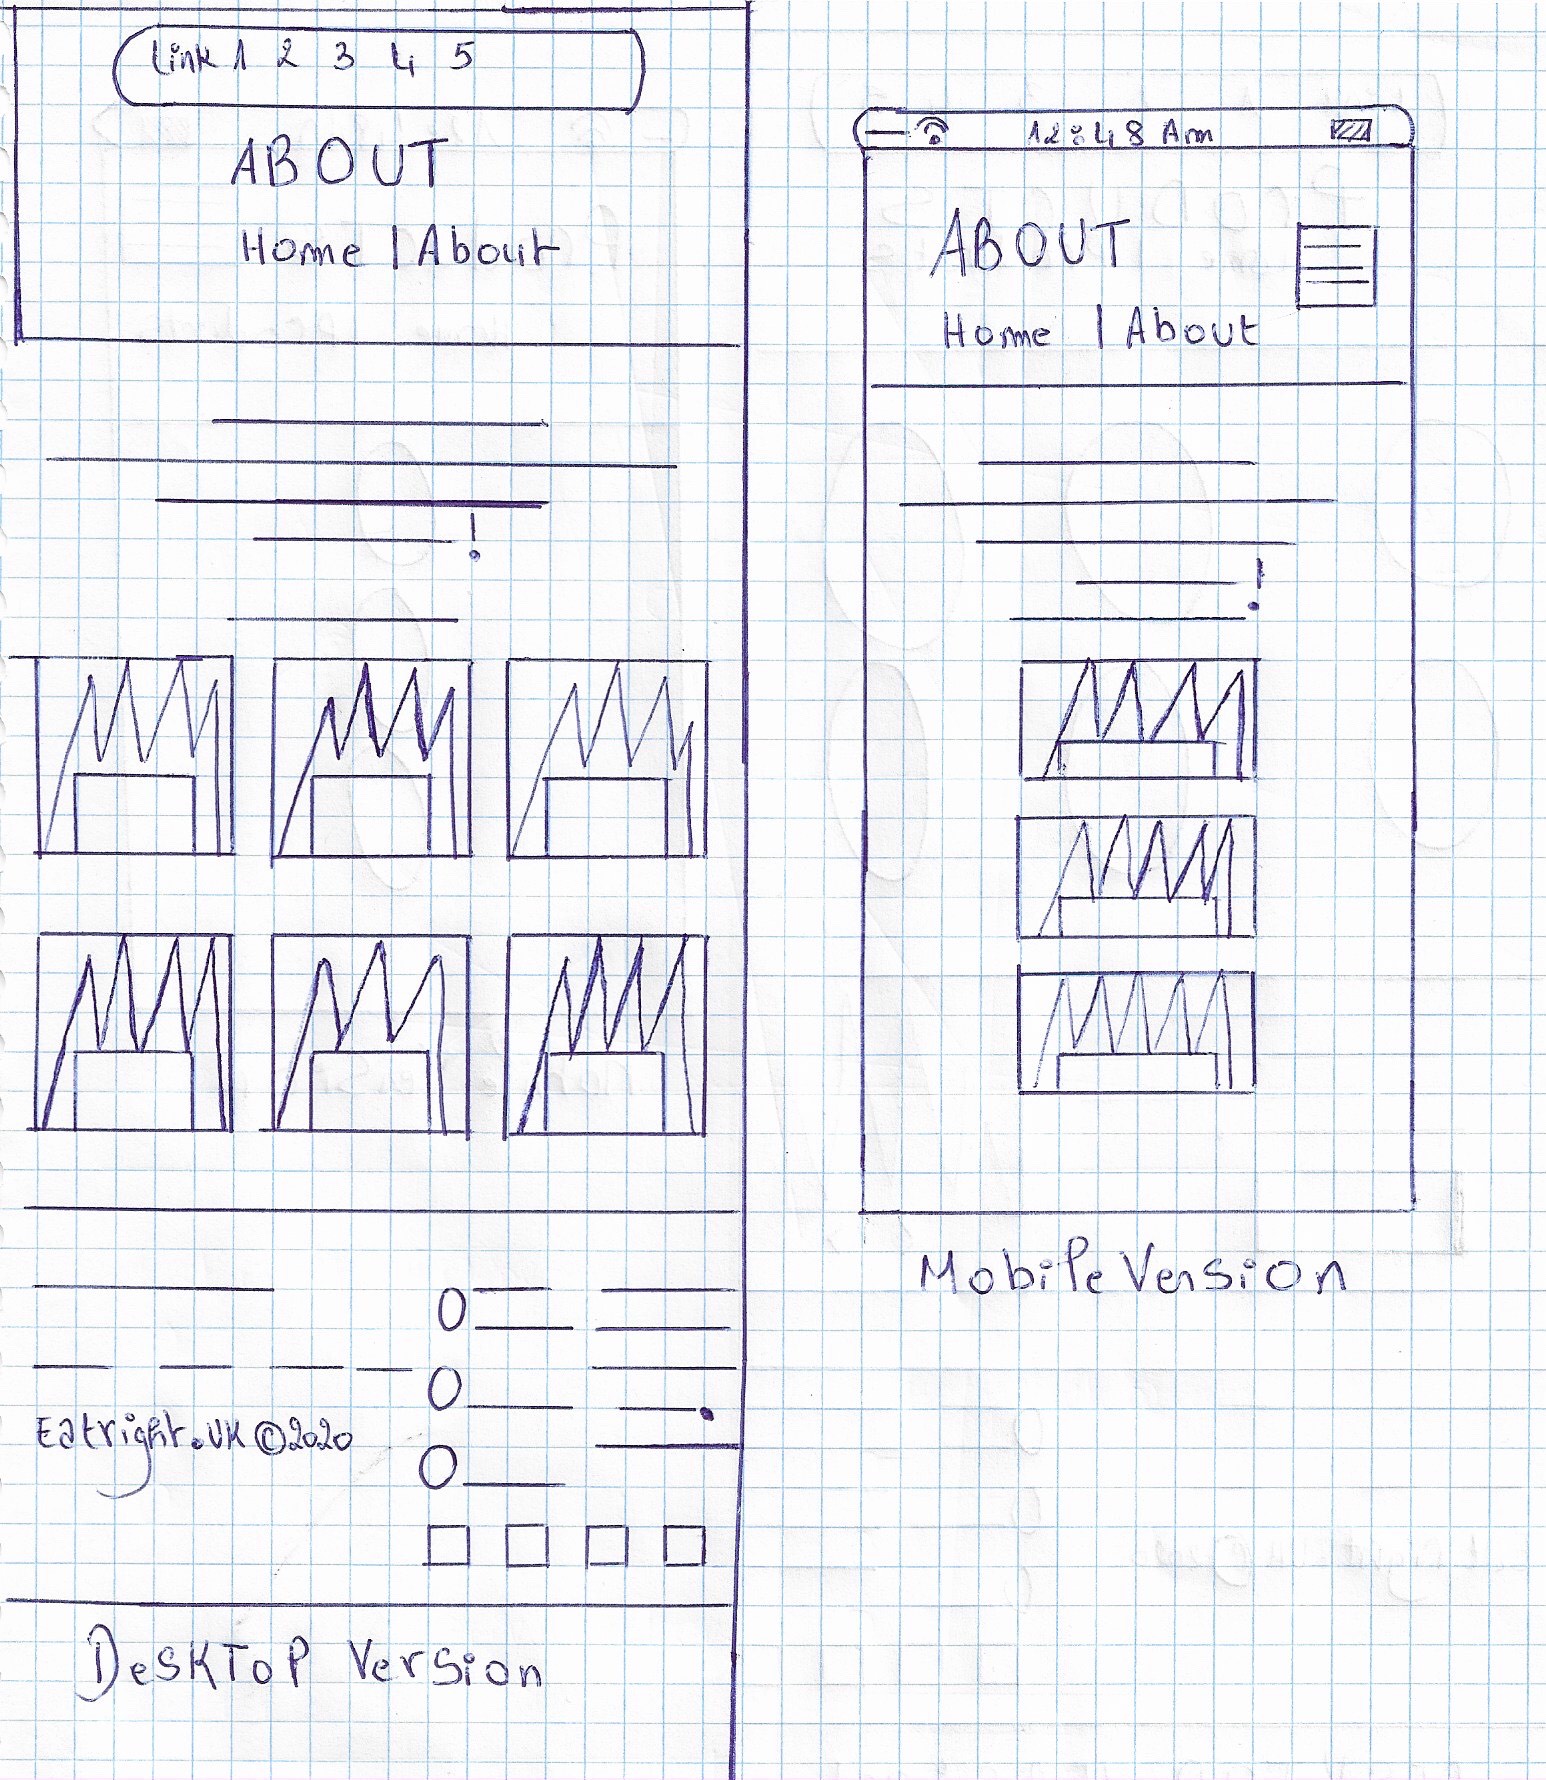 Link 1 2 3 4 5
ABOUT
Home | About
!
Eatright.UK ©2020
DeskTop Version
12:48 Am
ABOUT
Home | About
!
Mobile Version